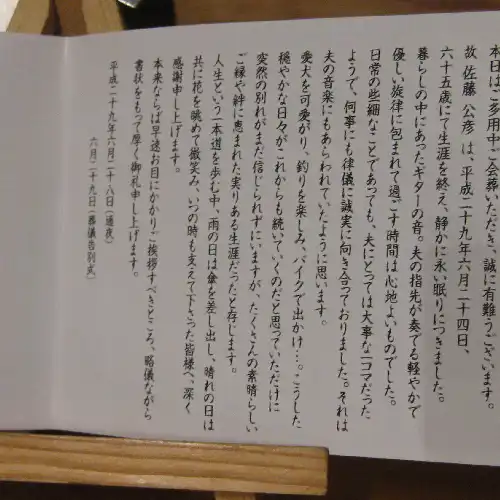 本日はご多用中ご会葬いただき、誠に有難うございます。
故 佐藤 公彦 は、平成二十九年六月二十四日、
六十五歳にて生涯を終え、静かに永い眠りにつきました。
暮らしの中にあったギターの音。夫の指先が奏でる軽やかで
優しい旋律に包まれて過ごす時間は心地よいものでした。
日常の些細なことであっても、夫にとっては大事な一コマだった
ようで、何事にも律儀に誠実に向き合っておりました。それは
夫の音楽にもあらわれていたように思います。
愛犬を可愛がり、釣りを楽しみ、バイクで出かけ…。こうした
穏やかな日々がこれからも続いていくのだと思っていただけに
突然の別れがまだ信じられずにいますが、たくさんの素晴らしい
ご縁や絆に恵まれた実りある生涯だったと存じます。
人生という一本道を歩む中、雨の日は傘を差し出し、晴れの日は
共に花を眺めて微笑み、いつの時も支えて下さった皆様へ、深く
感謝申し上げます。
本来ならば早速お目にかかりご挨拶すべきところ、略儀ながら
書状をもって厚く御礼申し上げます。
平成二十九年六月二十八日（通夜）
六月二十九日（葬儀告別式）